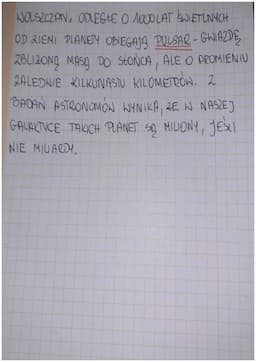 WOLSZCZAN. ODLEGŁE O 1000 LAT ŚWIETLNYCH
OD ZIEMI PLANETY OBIEGAJĄ PULSAR - GWIAZDĘ
ZBLIŻONĄ MASĄ DO SŁOŃCA, ALE O PROMIENIU
ZALEDWIE KILKUNASTU KILOMETRÓW. Z
BADAŃ ASTRONOMÓW WYNIKA, ŻE W NASZEJ
GALAKTYCE TAKICH PLANET SĄ MILIONY, JEŚLI
NIE MILIARDY.